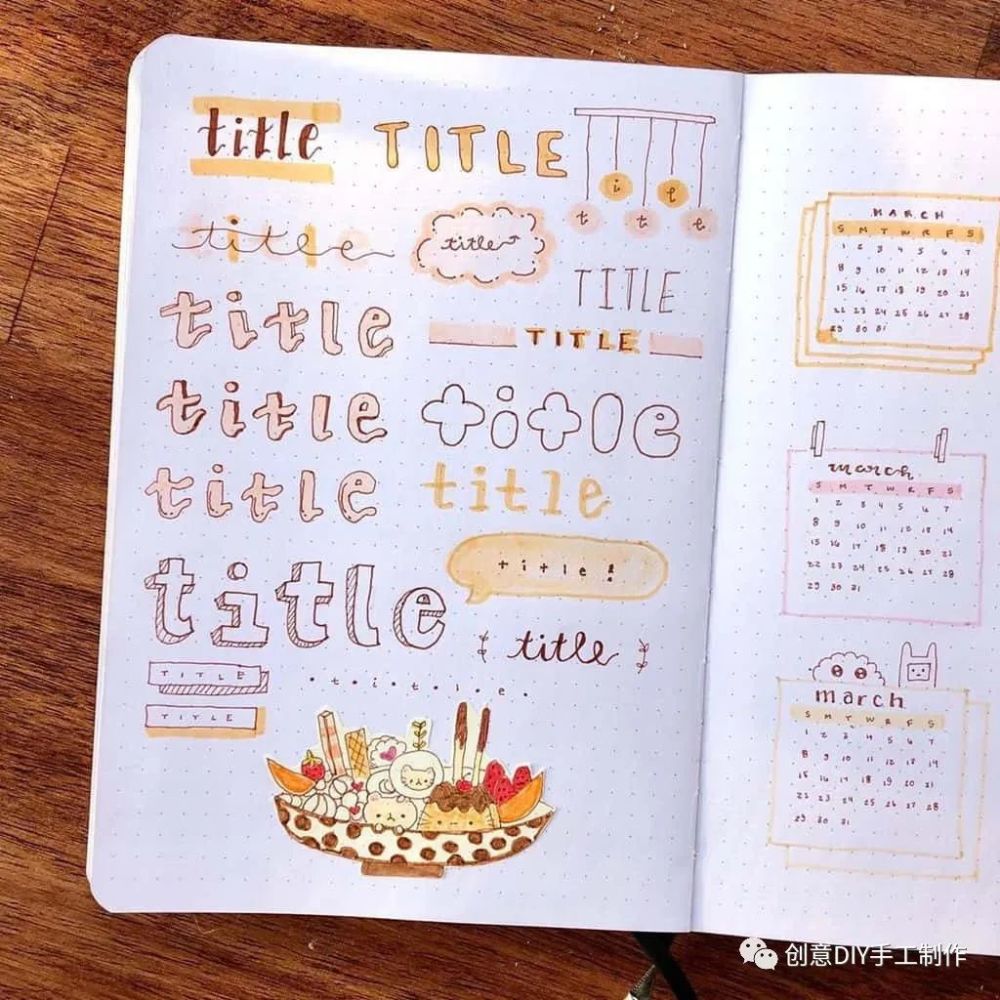 title
TITLE
title
title
title
TITLE
title
TITLE
title
title
title
title
title
title!
title
TITLE
•t•i•t•l•e•
TITLE
MARCH
S M T W R F S
1 2 3 4 5 6 7
8 9 10 11 12 13 14
15 16 17 18 19 20 21
22 23 24 25 26 27 28
29 30 31
march
S M T W R F S
1 2 3 4 5 6 7
8 9 10 11 12 13 14
15 16 17 18 19 20 21
22 23 24 25 26 27 28
29 30 31
march
S M T W R F S
1 2 3 4 5 6 7
8 9 10 11 12 13 14
15 16 17 18 19 20 21
22 23 24 25 26 27 28
29 30 31
创意DIY手工制作